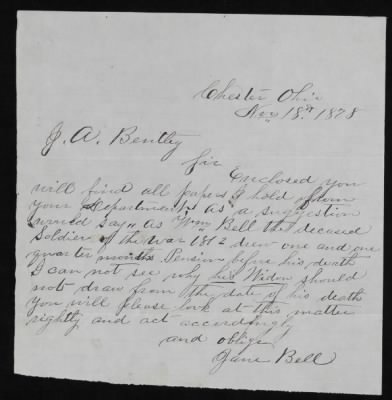 Chester Ohio
Nov 18th 1878
J. A. Bentley
Sir Enclosed you
will find all papers I hold from
your Department, as a suggestion
would say, as Wm Bell the deceased
Soldier of the war 1812 drew one and one
quarter months Pension before his death
I can not see why his Widow should
not draw from the date of his death
You will please look at this matter
rightly and act accordingly
and oblige
Jane Bell